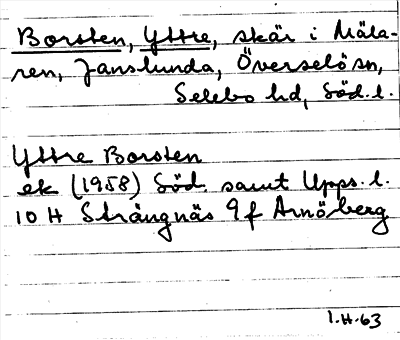 Borsten, Yttre, skär i Mäla-
ren, Janslunda, Överselö sn,
Selebo hd, Söd. l.
Yttre Borsten
ek (1958) Söd. samt Upps. l.
10 H Strängnäs 9 f Arnöberg
1.H.63